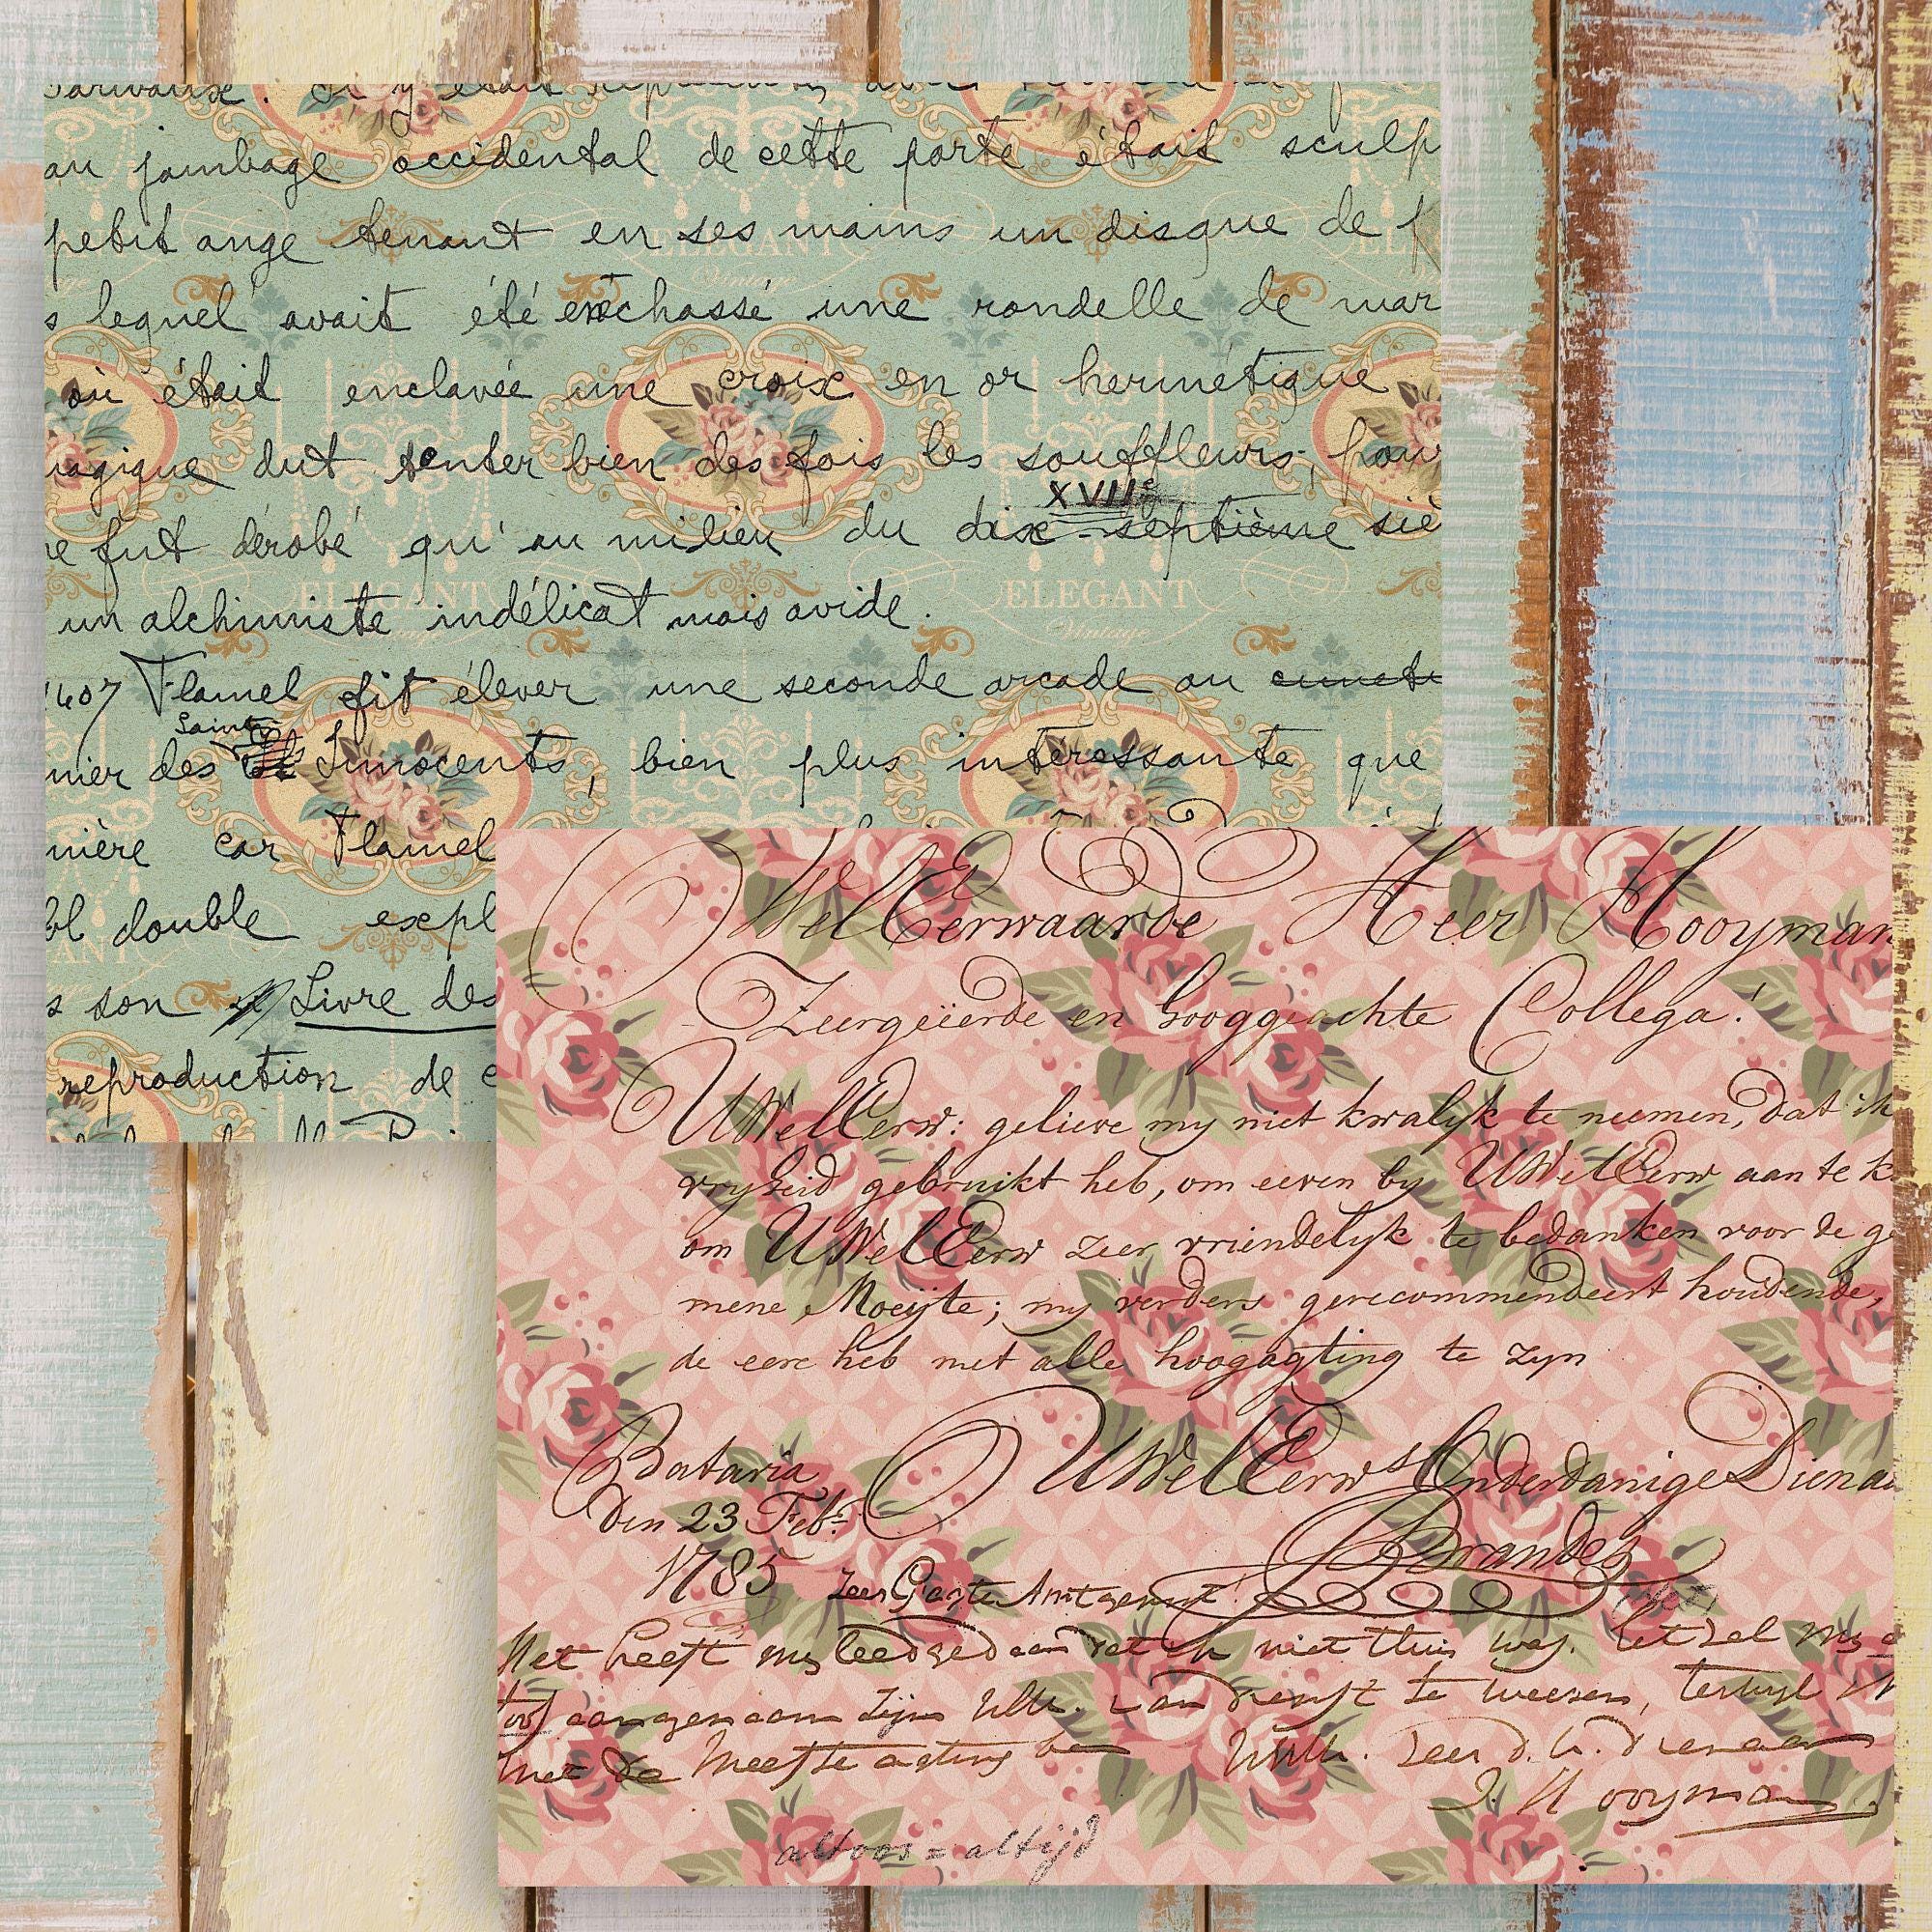 au jambage occidental de cette porte était sculp
petit ange tenant en ses mains un disque de
s lequel avait été enchassé une rondelle de mar
où était enclavée une croix en or hermétique
agique dut tenter bien des fois les souffleurs, pour
XVIIe
ne fut dérobé qu'au milieu du dix-septième siè
un alchimiste indélicat mais avide.
1407 Flamel fit élever une seconde arcade au
Saints
nier des Innocents, bien plus intéressante que
nière car Flamel
double expl
s son Livre des
reproduction de c
ELEGANT
Vintage
ELEGANT
Vintage
ELEGANT
WelEerwaarde Heer Hooyman
Zeergeëerde en hooggeachte Collega!
UWelEerw: gelieve my niet kwalyk te neemen, dat ik
vryheid gebruikt heb, om eeven by UWelEerw aan te k
om UWelEerw zeer vriendelyk te bedanken voor de ge
mene Moeijte; my verders gerecommendeert houdende,
de eere heb met alle hoogagting te zyn
Batavia
den 23 Feb:
1785
UWelEerws Onderdanige Diena
Brandes
Het heeft my leed gedaan dat ik niet thuis was. het zal my
aangenaam zijn te weesen, terwyl
met de meeste agting ben
J. Hooyman
altoos = altijd